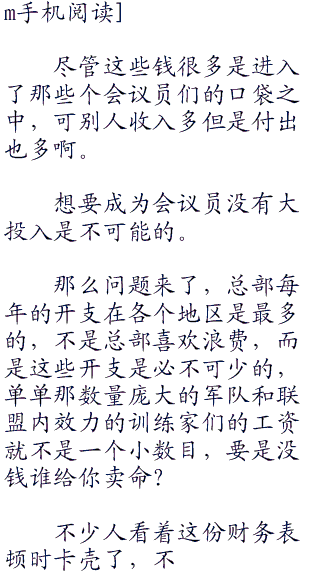 m手机阅读]
尽管这些钱很多是进入
了那些个会议员们的口袋之
中，可别人收入多但是付出
也多啊。
想要成为会议员没有大
投入是不可能的。
那么问题来了，总部每
年的开支在各个地区是最多
的，不是总部喜欢浪费，而
是这些开支是必不可少的，
单单那数量庞大的军队和联
盟内效力的训练家们的工资
就不是一个小数目，要是没
钱谁给你卖命？
不少人看着这份财务表
顿时卡壳了，不